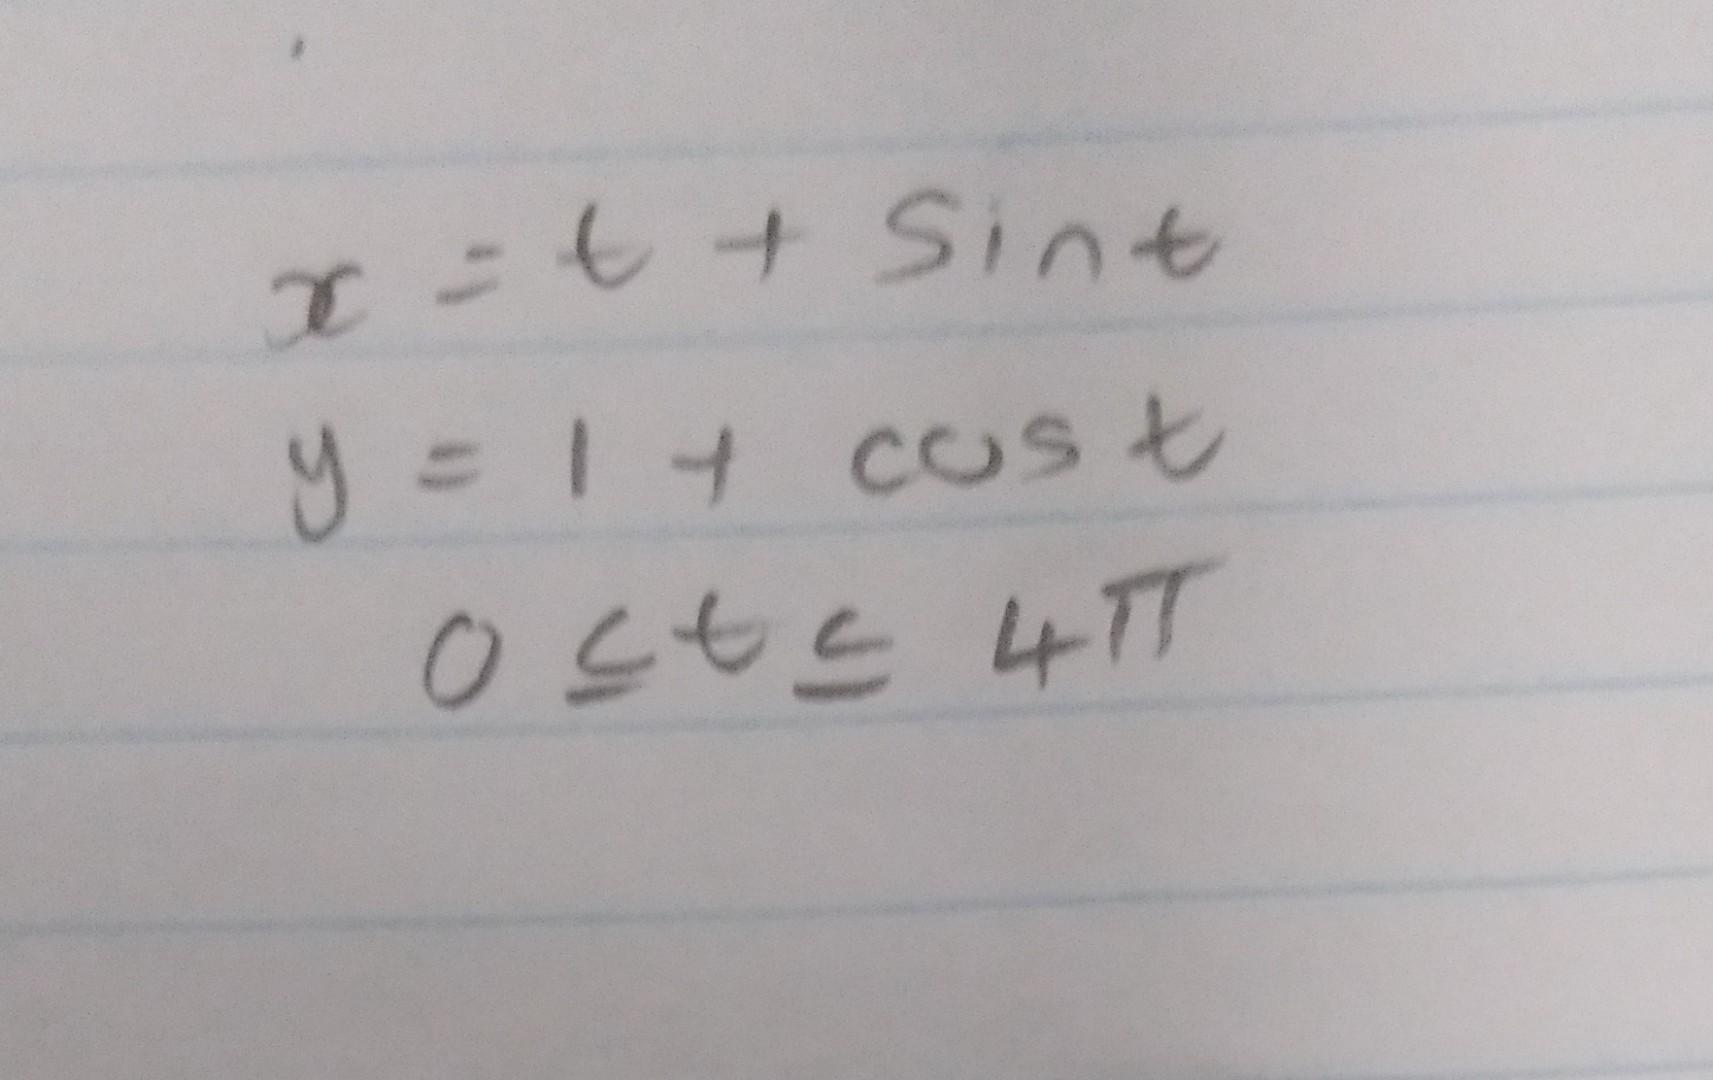 x = t + sin t
y = 1 + cos t
0 ≤ t ≤ 4π